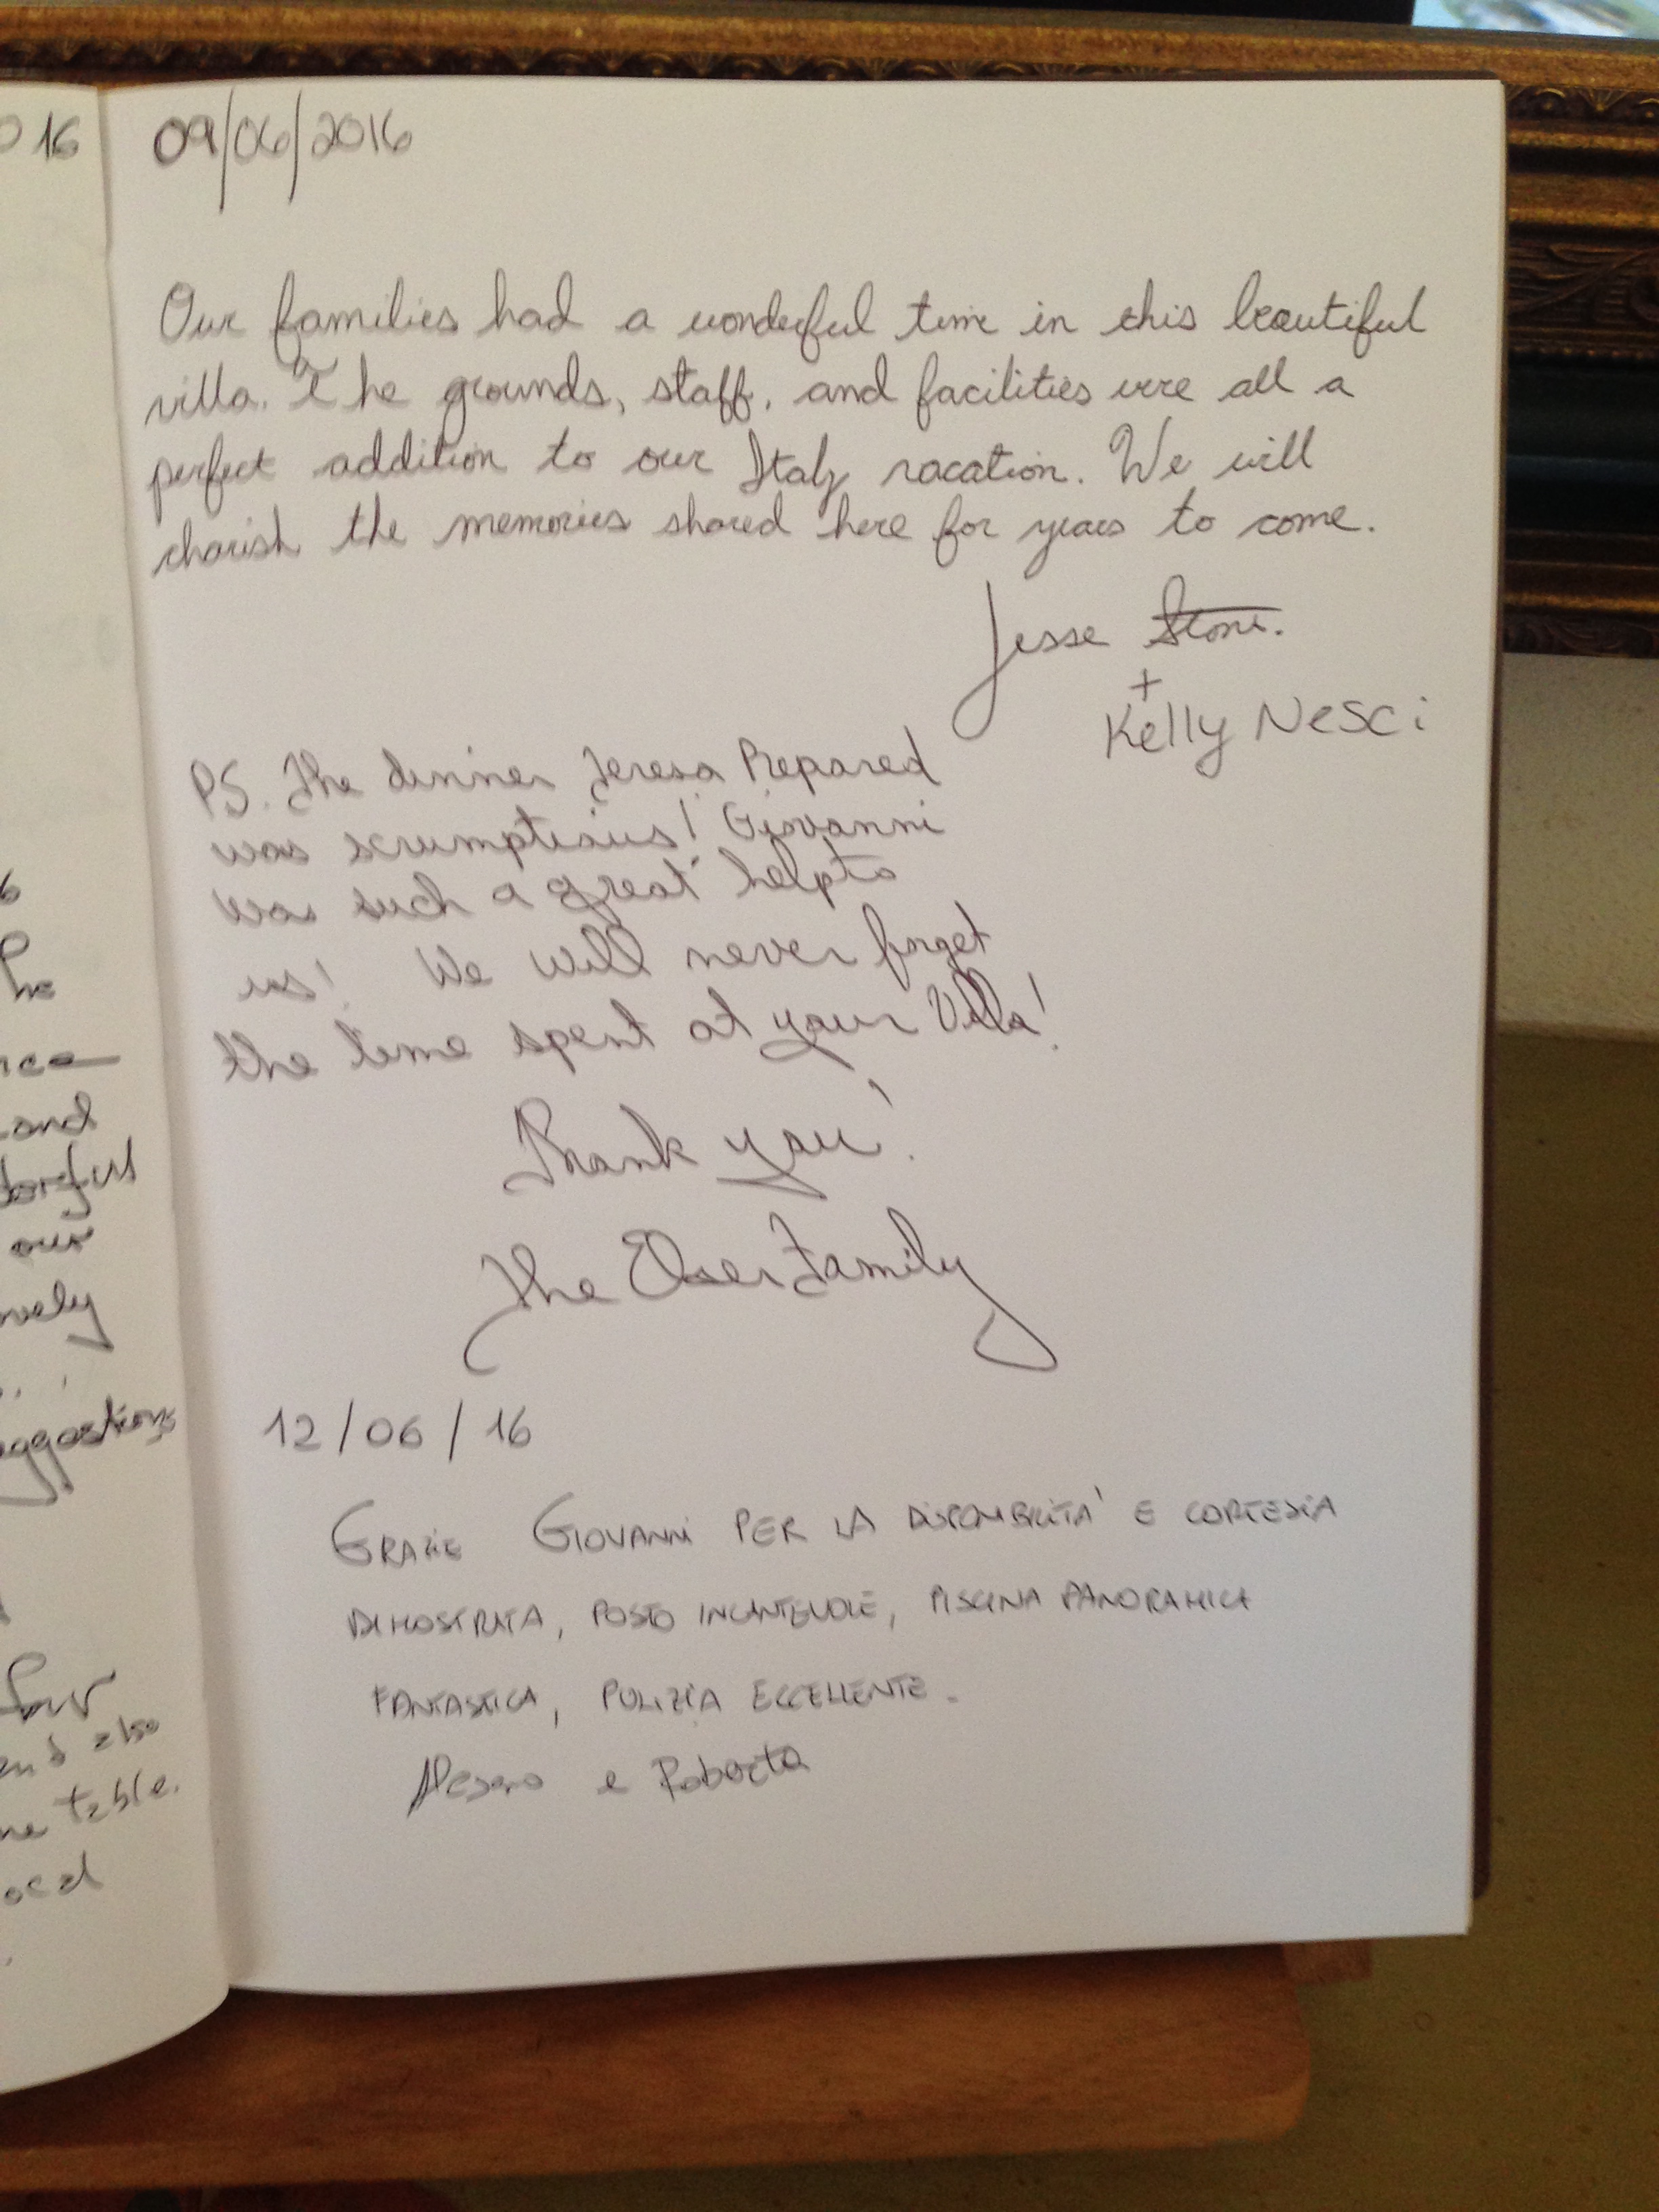 016
09/06/2016
Our families had a wonderful time in this beautiful
villa. The grounds, staff, and facilities were all a
perfect addition to our Italy vacation. We will
charish the memories shared here for years to come.
Jesse
+
Kelly Nesci
PS. The dinner Teresa Prepared
was scrumptious! Giovanni
was such a great help to
us! We will never forget
the time spent at your Villa!
Thank you!
The Family
12/06/16
GRAZIE GIOVANNI PER LA DISPONIBILITA' E CORTESIA
DIMOSTRATA, POSTO INCANTEVOLE, PISCINA PANORAMICA
FANTASTICA, PULIZIA ECCELLENTE.
e Roberta
he
and
our
for
also
table.